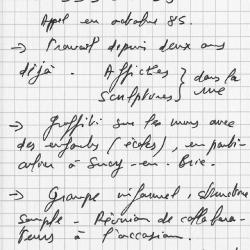 Appel en octobre 85
→ Travail depuis deux ans
déjà. Affiches } dans la
sculptures } rue
→ Graffiti sur les murs avec
des enfants (écoles), en parti-
culier à Sucy-en-Brie.
→ Groupe informel, structure
souple. Réunion de collabora-
teurs à l'occasion.